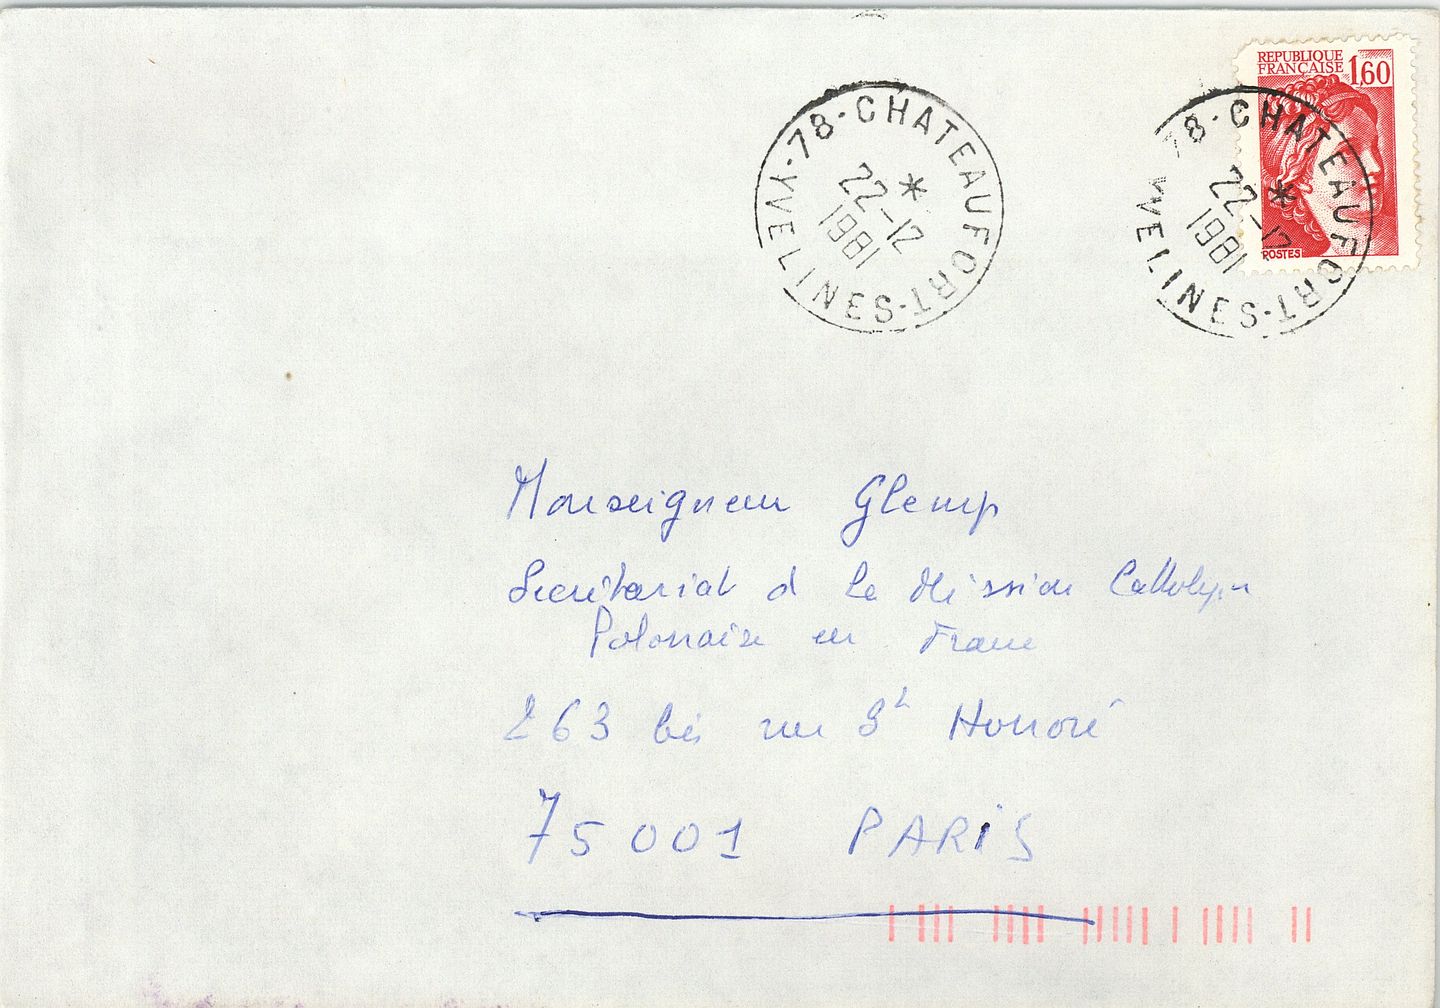 REPUBLIQUE
FRANÇAISE 1,60
POSTES
78-CHATEAUFORT-YVELINES
22-12
1981
78-CHATEAUFORT-YVELINES
22-12
1981
Monseigneur Glemp
Secrétariat d la Mission Catholique
Polonaise en France
263 bis rue St Honoré
75001 PARIS